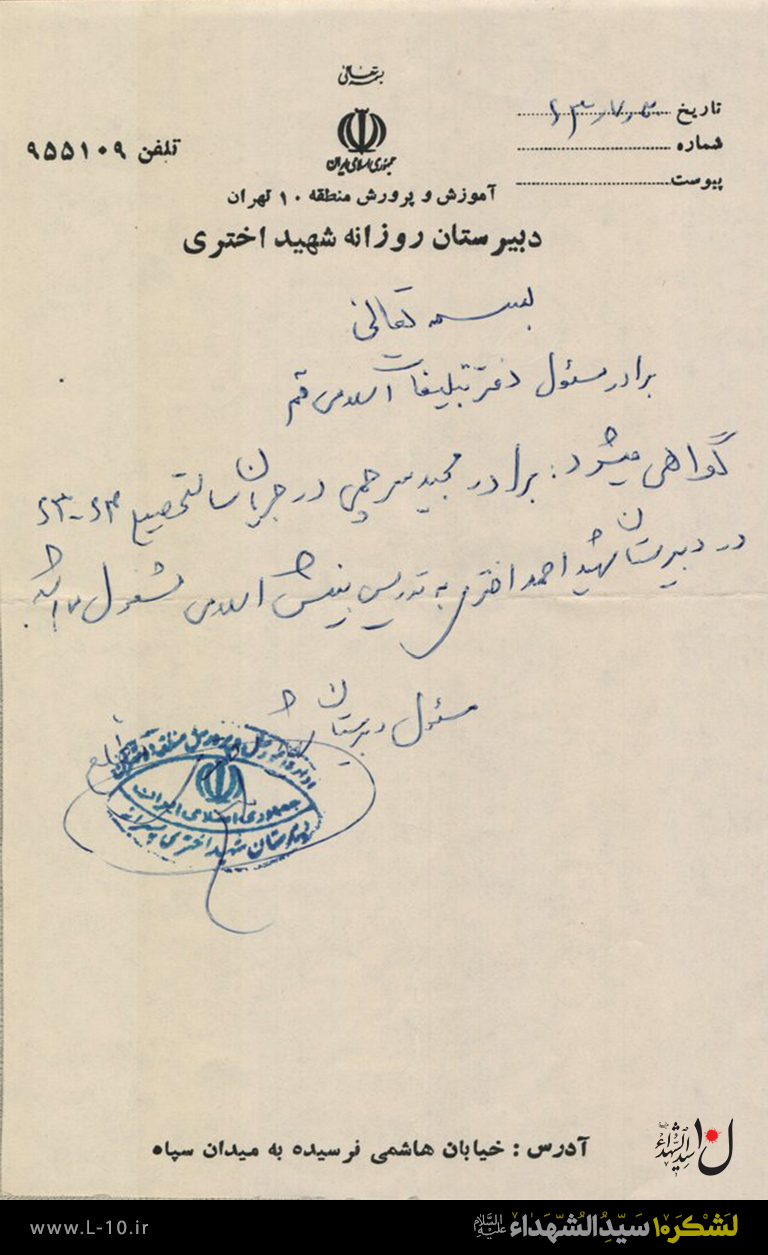 بسمه تعالی
جمهوری اسلامی ایران
تاریخ
شماره
پیوست
تلفن ۹۵۵۱۰۹
آموزش و پرورش منطقه ۱۰ تهران
دبیرستان روزانه شهید اختری
بسمه تعالی
برادر مسئول دفتر تبلیغات اسلامی قم
گواهی میشود: برادر مجید سرحمی در جریان سالتحصیلی ۶۴-۶۳
در دبیرستان شهید احمد اختری به تدریس بینش اسلامی مشغول
مسئول دبیرستان
جمهوری اسلامی ایران
دبیرستان شهید اختری پسرانه
آدرس : خیابان هاشمی فرسیده به میدان سپاه
ل۱۰ سیدالشهداء
www.L-10.ir
لشکر۱۰ سیدالشهداء علیه السلام